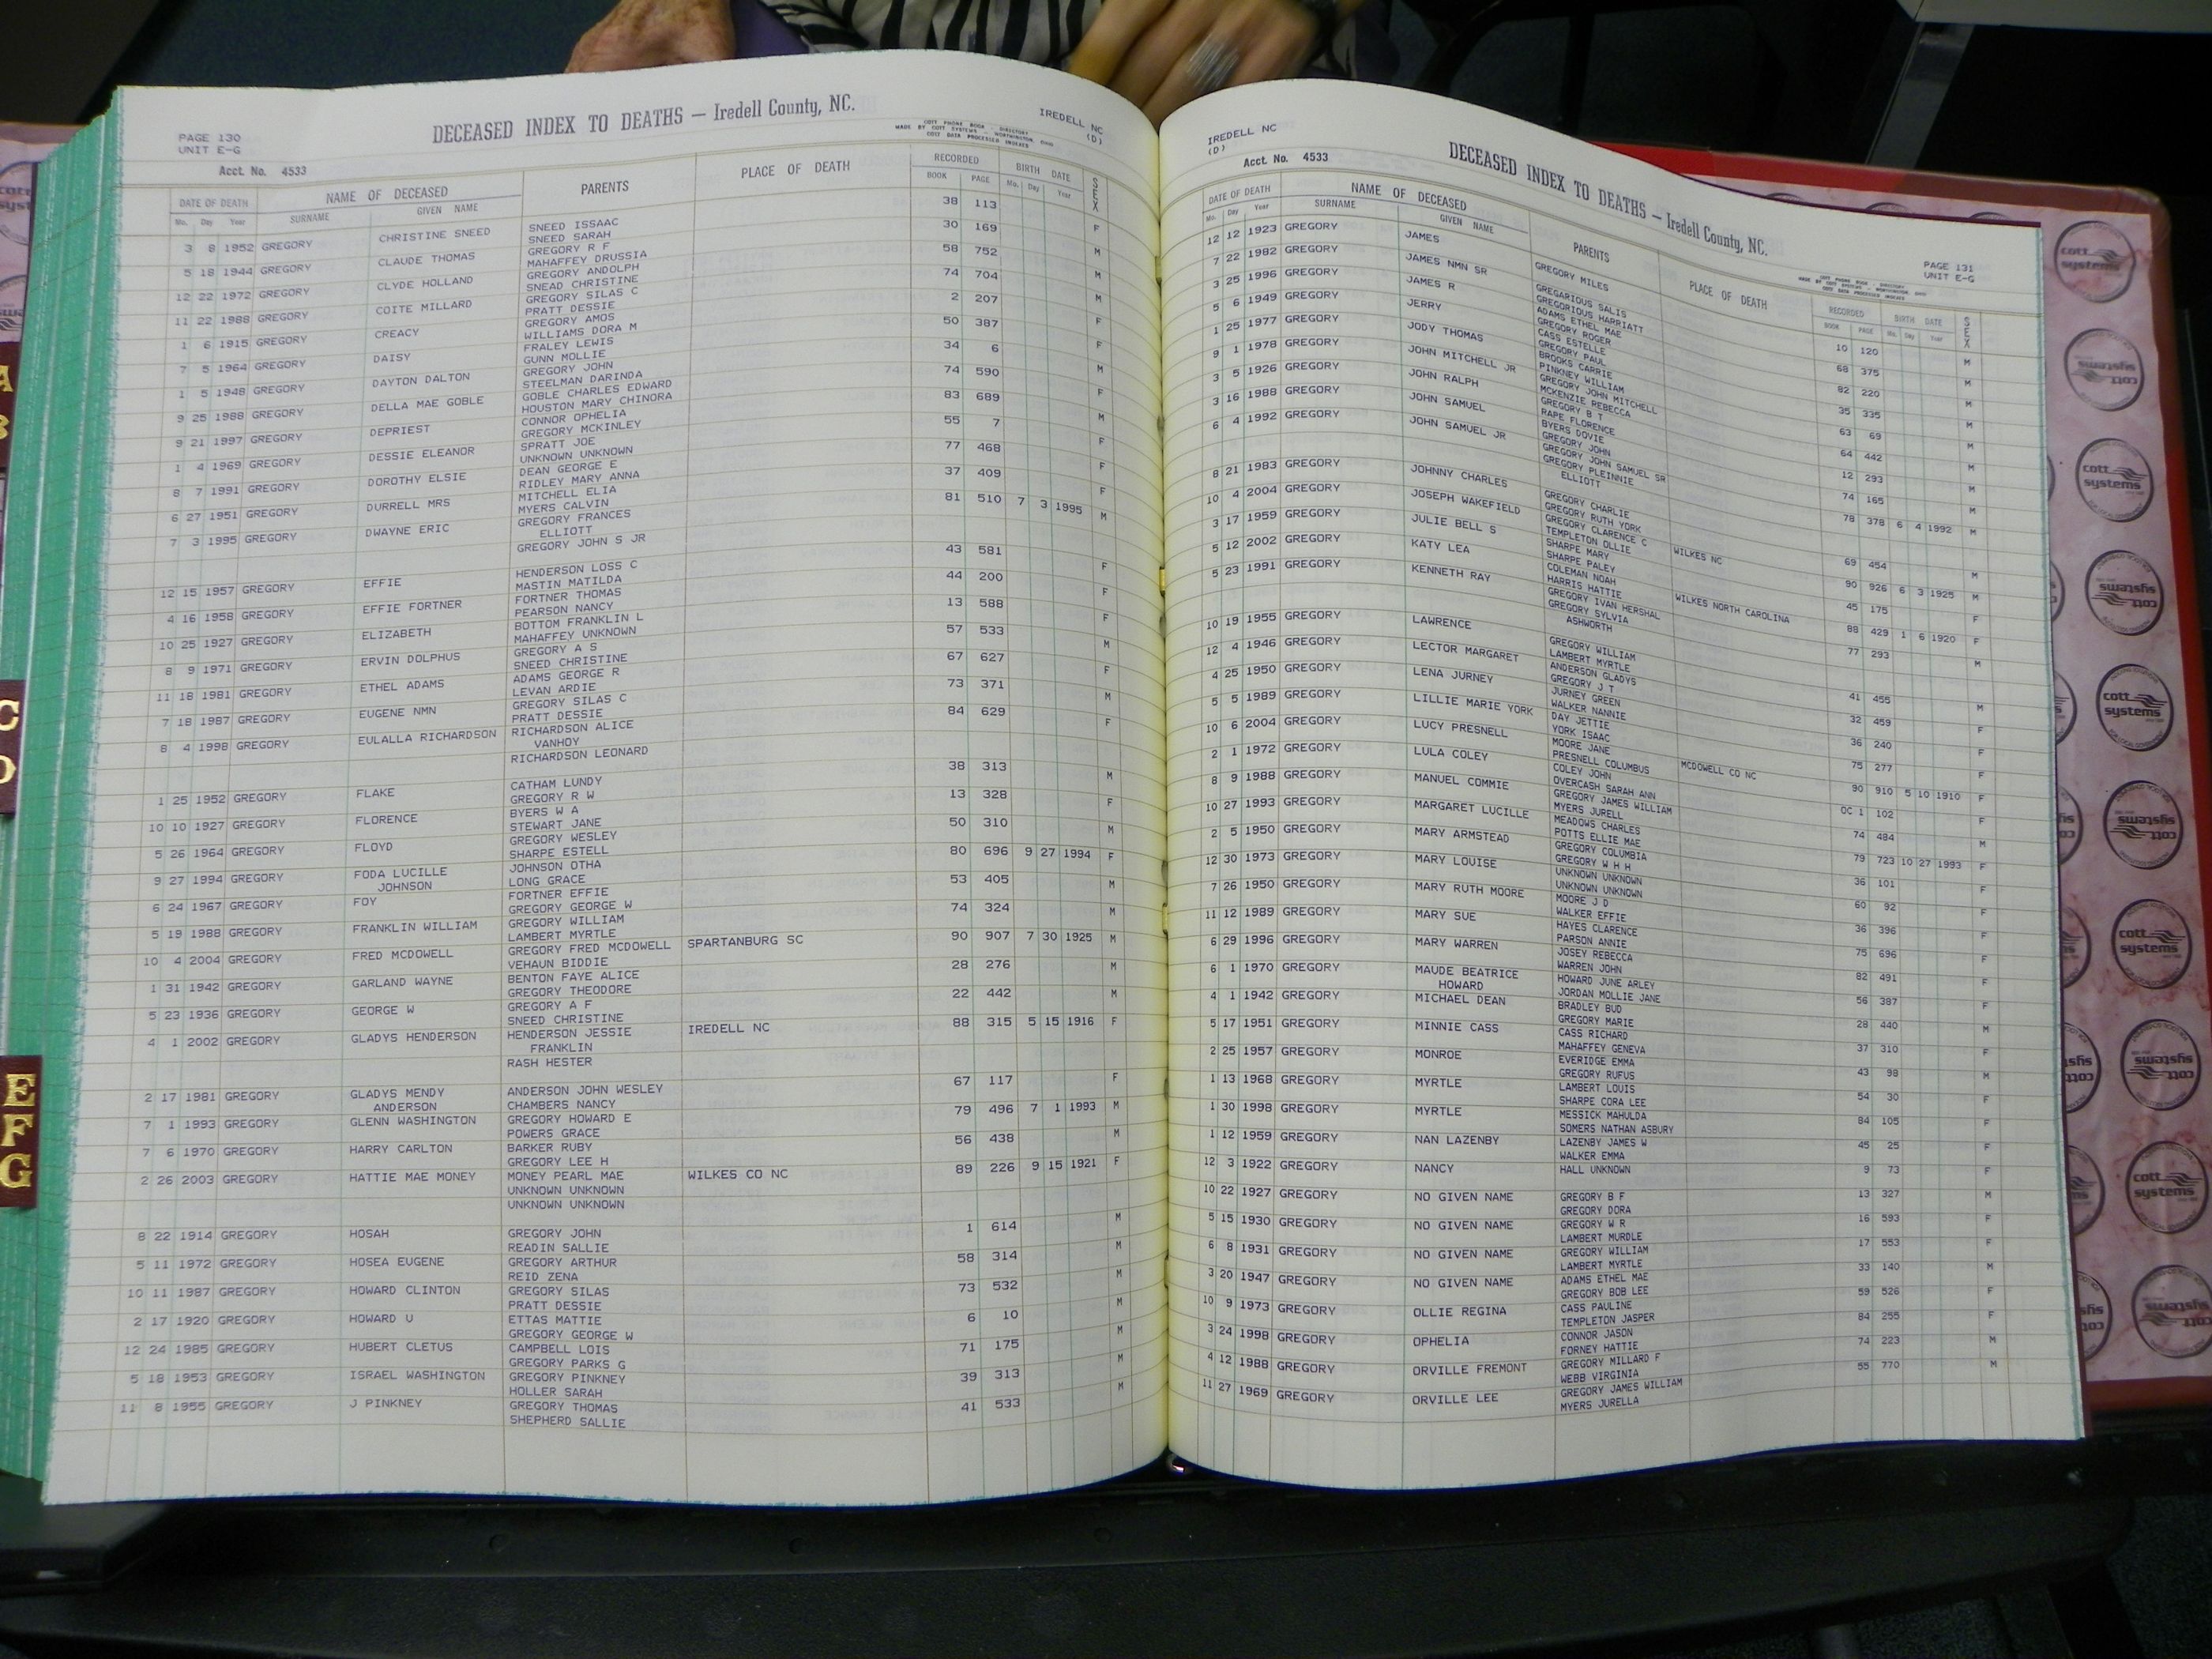 PAGE 130
UNIT E-G
DECEASED INDEX TO DEATHS — Iredell County, NC.
IREDELL NC
(D)
Acct. No. 4533
DATE OF DEATH NAME OF DECEASED PARENTS PLACE OF DEATH RECORDED BIRTH DATE SEX
Mo. Day Year SURNAME GIVEN NAME BOOK PAGE Mo. Day Year
3 8 1952 GREGORY CHRISTINE SNEED SNEED ISSAAC 38 113 F
SNEED SARAH
5 18 1944 GREGORY CLAUDE THOMAS GREGORY R F 30 169 M
MAHAFFEY DRUSSIA
12 22 1972 GREGORY CLYDE HOLLAND GREGORY ANDOLPH 58 752 M
SNEAD CHRISTINE
11 22 1988 GREGORY COITE MILLARD GREGORY SILAS C 74 704 M
PRATT DESSIE
1 6 1915 GREGORY CREACY GREGORY AMOS 2 207 F
WILLIAMS DORA M
7 5 1964 GREGORY DAISY FRALEY LEWIS 50 387 F
GUNN MOLLIE
1 5 1948 GREGORY DAYTON DALTON GREGORY JOHN 34 6 M
STEELMAN DARINDA
9 25 1988 GREGORY DELLA MAE GOBLE GOBLE CHARLES EDWARD 74 590 F
HOUSTON MARY CHINORA
9 21 1997 GREGORY DEPRIEST CONNOR OPHELIA 83 689 M
GREGORY MCKINLEY
1 4 1969 GREGORY DESSIE ELEANOR SPRATT JOE 55 7 F
UNKNOWN UNKNOWN
8 7 1991 GREGORY DOROTHY ELSIE DEAN GEORGE E 77 468 F
RIDLEY MARY ANNA
6 27 1951 GREGORY DURRELL MRS MITCHELL ELIA 37 409 F
MYERS CALVIN
7 3 1995 GREGORY DWAYNE ERIC GREGORY FRANCES 81 510 7 3 1995 M
ELLIOTT
GREGORY JOHN S JR
12 15 1957 GREGORY EFFIE HENDERSON LOSS C 43 581 F
MASTIN MATILDA
4 16 1958 GREGORY EFFIE FORTNER FORTNER THOMAS 44 200 F
PEARSON NANCY
10 25 1927 GREGORY ELIZABETH BOTTOM FRANKLIN L 13 588 F
MAHAFFEY UNKNOWN
8 9 1971 GREGORY ERVIN DOLPHUS GREGORY A S 57 533 M
SNEED CHRISTINE
11 18 1981 GREGORY ETHEL ADAMS ADAMS GEORGE R 67 627 F
LEVAN ARDIE
7 18 1987 GREGORY EUGENE NMN GREGORY SILAS C 73 371 M
PRATT DESSIE
8 4 1998 GREGORY EULALLA RICHARDSON RICHARDSON ALICE 84 629 F
VANHOY
RICHARDSON LEONARD
1 25 1952 GREGORY FLAKE CATHAM LUNDY 38 313 M
GREGORY R W
10 10 1927 GREGORY FLORENCE BYERS W A 13 328 F
STEWART JANE
5 26 1964 GREGORY FLOYD GREGORY WESLEY 50 310 M
SHARPE ESTELL
9 27 1994 GREGORY FODA LUCILLE JOHNSON OTHA 80 696 9 27 1994 F
JOHNSON LONG GRACE
6 24 1967 GREGORY FOY FORTNER EFFIE 53 405 M
GREGORY GEORGE W
5 19 1988 GREGORY FRANKLIN WILLIAM GREGORY WILLIAM 74 324 M
LAMBERT MYRTLE
10 4 2004 GREGORY FRED MCDOWELL GREGORY FRED MCDOWELL SPARTANBURG SC 90 907 7 30 1925 M
VEHAUN BIDDIE
1 31 1942 GREGORY GARLAND WAYNE BENTON FAYE ALICE 28 276 M
GREGORY THEODORE
5 23 1936 GREGORY GEORGE W GREGORY A F 22 442 M
SNEED CHRISTINE
4 1 2002 GREGORY GLADYS HENDERSON HENDERSON JESSIE IREDELL NC 88 315 5 15 1916 F
FRANKLIN
RASH HESTER
2 17 1981 GREGORY GLADYS MENDY ANDERSON JOHN WESLEY 67 117 F
ANDERSON CHAMBERS NANCY
7 1 1993 GREGORY GLENN WASHINGTON GREGORY HOWARD E 79 496 7 1 1993 M
POWERS GRACE
7 6 1970 GREGORY HARRY CARLTON BARKER RUBY 56 438 M
GREGORY LEE H
2 26 2003 GREGORY HATTIE MAE MONEY MONEY PEARL MAE WILKES CO NC 89 226 9 15 1921 F
UNKNOWN UNKNOWN
UNKNOWN UNKNOWN
8 22 1914 GREGORY HOSAH GREGORY JOHN 1 614 M
READIN SALLIE
5 11 1972 GREGORY HOSEA EUGENE GREGORY ARTHUR 58 314 M
REID ZENA
10 11 1987 GREGORY HOWARD CLINTON GREGORY SILAS 73 532 M
PRATT DESSIE
2 17 1920 GREGORY HOWARD U ETTAS MATTIE 6 10 M
GREGORY GEORGE W
12 24 1985 GREGORY HUBERT CLETUS CAMPBELL LOIS 71 175 M
GREGORY PARKS G
5 18 1953 GREGORY ISRAEL WASHINGTON GREGORY PINKNEY 39 313 M
HOLLER SARAH
11 8 1955 GREGORY J PINKNEY GREGORY THOMAS 41 533 M
SHEPHERD SALLIE
IREDELL NC
(D)
Acct. No. 4533
DECEASED INDEX TO DEATHS — Iredell County, NC.
PAGE 131
UNIT E-G
DATE OF DEATH NAME OF DECEASED PARENTS PLACE OF DEATH RECORDED BIRTH DATE SEX
Mo. Day Year SURNAME GIVEN NAME BOOK PAGE Mo. Day Year
12 12 1923 GREGORY JAMES GREGORY MILES 10 120 M
7 22 1982 GREGORY JAMES NMN SR GREGARIOUS SALIS 68 375 M
GREGORIOUS HARRIATT
3 25 1996 GREGORY JAMES R ADAMS ETHEL MAE 82 220 M
GREGORY ROGER
5 6 1949 GREGORY JERRY CASS ESTELLE 35 335 M
GREGORY PAUL
1 25 1977 GREGORY JODY THOMAS BROOKS CARRIE 63 69 M
PINKNEY WILLIAM
9 1 1978 GREGORY JOHN MITCHELL JR GREGORY JOHN MITCHELL 64 442 M
MCKENZIE REBECCA
3 5 1926 GREGORY JOHN RALPH GREGORY B T 12 293 M
RAPE FLORENCE
3 16 1988 GREGORY JOHN SAMUEL BYERS DOVIE 74 165 M
GREGORY JOHN
6 4 1992 GREGORY JOHN SAMUEL JR GREGORY JOHN SAMUEL SR 78 378 6 4 1992 M
GREGORY PLEINNIE
ELLIOTT
8 21 1983 GREGORY JOHNNY CHARLES GREGORY CHARLIE 69 454 M
GREGORY RUTH YORK
10 4 2004 GREGORY JOSEPH WAKEFIELD GREGORY CLARENCE C WILKES NC 90 926 6 3 1925 M
TEMPLETON OLLIE
3 17 1959 GREGORY JULIE BELL S SHARPE MARY 45 175 F
SHARPE PALEY
5 12 2002 GREGORY KATY LEA COLEMAN NOAH WILKES NORTH CAROLINA 88 429 1 6 1920 F
HARRIS HATTIE
5 23 1991 GREGORY KENNETH RAY GREGORY IVAN HERSHAL 77 293 M
GREGORY SYLVIA
ASHWORTH
10 19 1955 GREGORY LAWRENCE GREGORY WILLIAM 41 455 M
LAMBERT MYRTLE
12 4 1946 GREGORY LECTOR MARGARET ANDERSON GLADYS 32 459 F
GREGORY J T
4 25 1950 GREGORY LENA JURNEY JURNEY GREEN 36 240 F
WALKER NANNIE
5 5 1989 GREGORY LILLIE MARIE YORK DAY JETTIE 75 277 F
YORK ISAAC
10 6 2004 GREGORY LUCY PRESNELL MOORE JANE MCDOWELL CO NC 90 910 5 10 1910 F
PRESNELL COLUMBUS
2 1 1972 GREGORY LULA COLEY COLEY JOHN OC 1 102 F
OVERCASH SARAH ANN
8 9 1988 GREGORY MANUEL COMMIE GREGORY JAMES WILLIAM 74 484 M
MYERS JURELL
10 27 1993 GREGORY MARGARET LUCILLE MEADOWS CHARLES 79 723 10 27 1993 F
POTTS ELLIE MAE
2 5 1950 GREGORY MARY ARMSTEAD GREGORY COLUMBIA 36 101 F
GREGORY W H H
12 30 1973 GREGORY MARY LOUISE UNKNOWN UNKNOWN 60 92 F
UNKNOWN UNKNOWN
7 26 1950 GREGORY MARY RUTH MOORE MOORE J D 36 396 F
WALKER EFFIE
11 12 1989 GREGORY MARY SUE HAYES CLARENCE 75 696 F
PARSON ANNIE
6 29 1996 GREGORY MARY WARREN JOSEY REBECCA 82 491 F
WARREN JOHN
6 1 1970 GREGORY MAUDE BEATRICE HOWARD JUNE ARLEY 56 387 F
HOWARD JORDAN MOLLIE JANE
4 1 1942 GREGORY MICHAEL DEAN BRADLEY BUD 28 440 M
GREGORY MARIE
5 17 1951 GREGORY MINNIE CASS CASS RICHARD 37 310 F
MAHAFFEY GENEVA
2 25 1957 GREGORY MONROE EVERIDGE EMMA 43 98 M
GREGORY RUFUS
1 13 1968 GREGORY MYRTLE LAMBERT LOUIS 54 30 F
SHARPE CORA LEE
1 30 1998 GREGORY MYRTLE MESSICK MAHULDA 84 105 F
SOMERS NATHAN ASBURY
1 12 1959 GREGORY NAN LAZENBY LAZENBY JAMES W 45 25 F
WALKER EMMA
12 3 1922 GREGORY NANCY HALL UNKNOWN 9 73 F
10 22 1927 GREGORY NO GIVEN NAME GREGORY B F 13 327 M
GREGORY DORA
5 15 1930 GREGORY NO GIVEN NAME GREGORY W R 16 593 F
LAMBERT MURDLE
6 8 1931 GREGORY NO GIVEN NAME GREGORY WILLIAM 17 553 F
LAMBERT MYRTLE
3 20 1947 GREGORY NO GIVEN NAME ADAMS ETHEL MAE 33 140 M
GREGORY BOB LEE
10 9 1973 GREGORY OLLIE REGINA CASS PAULINE 59 526 F
TEMPLETON JASPER
3 24 1998 GREGORY OPHELIA CONNOR JASON 84 255 F
FORNEY HATTIE
4 12 1988 GREGORY ORVILLE FREMONT GREGORY MILLARD F 74 223 M
WEBB VIRGINIA
11 27 1969 GREGORY ORVILLE LEE GREGORY JAMES WILLIAM 55 770 M
MYERS JURELLA
A
C
D
E
F
G
cott
systems